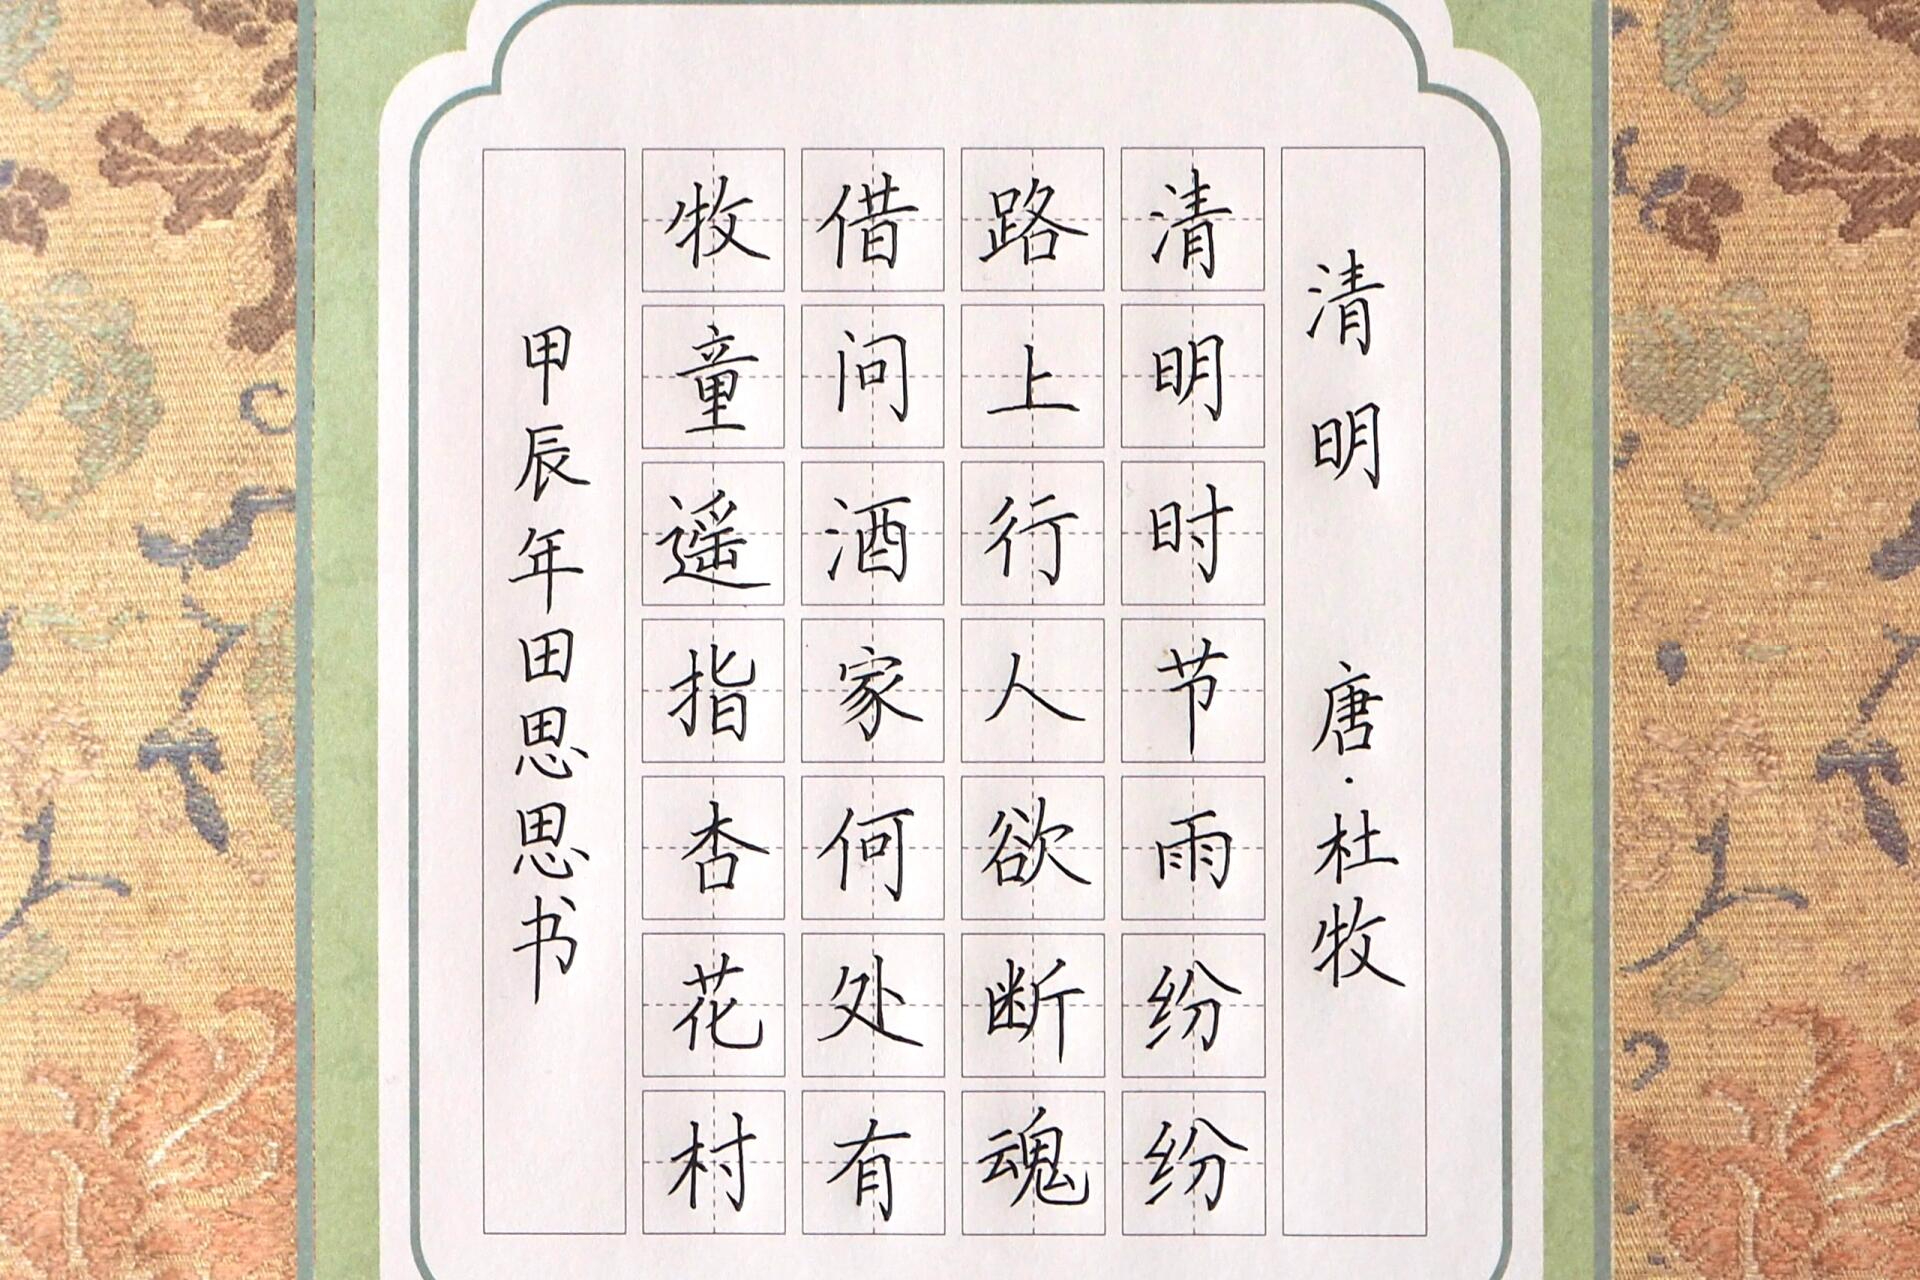 清明 唐·杜牧
清明时节雨纷纷
路上行人欲断魂
借问酒家何处有
牧童遥指杏花村
甲辰年田思思书